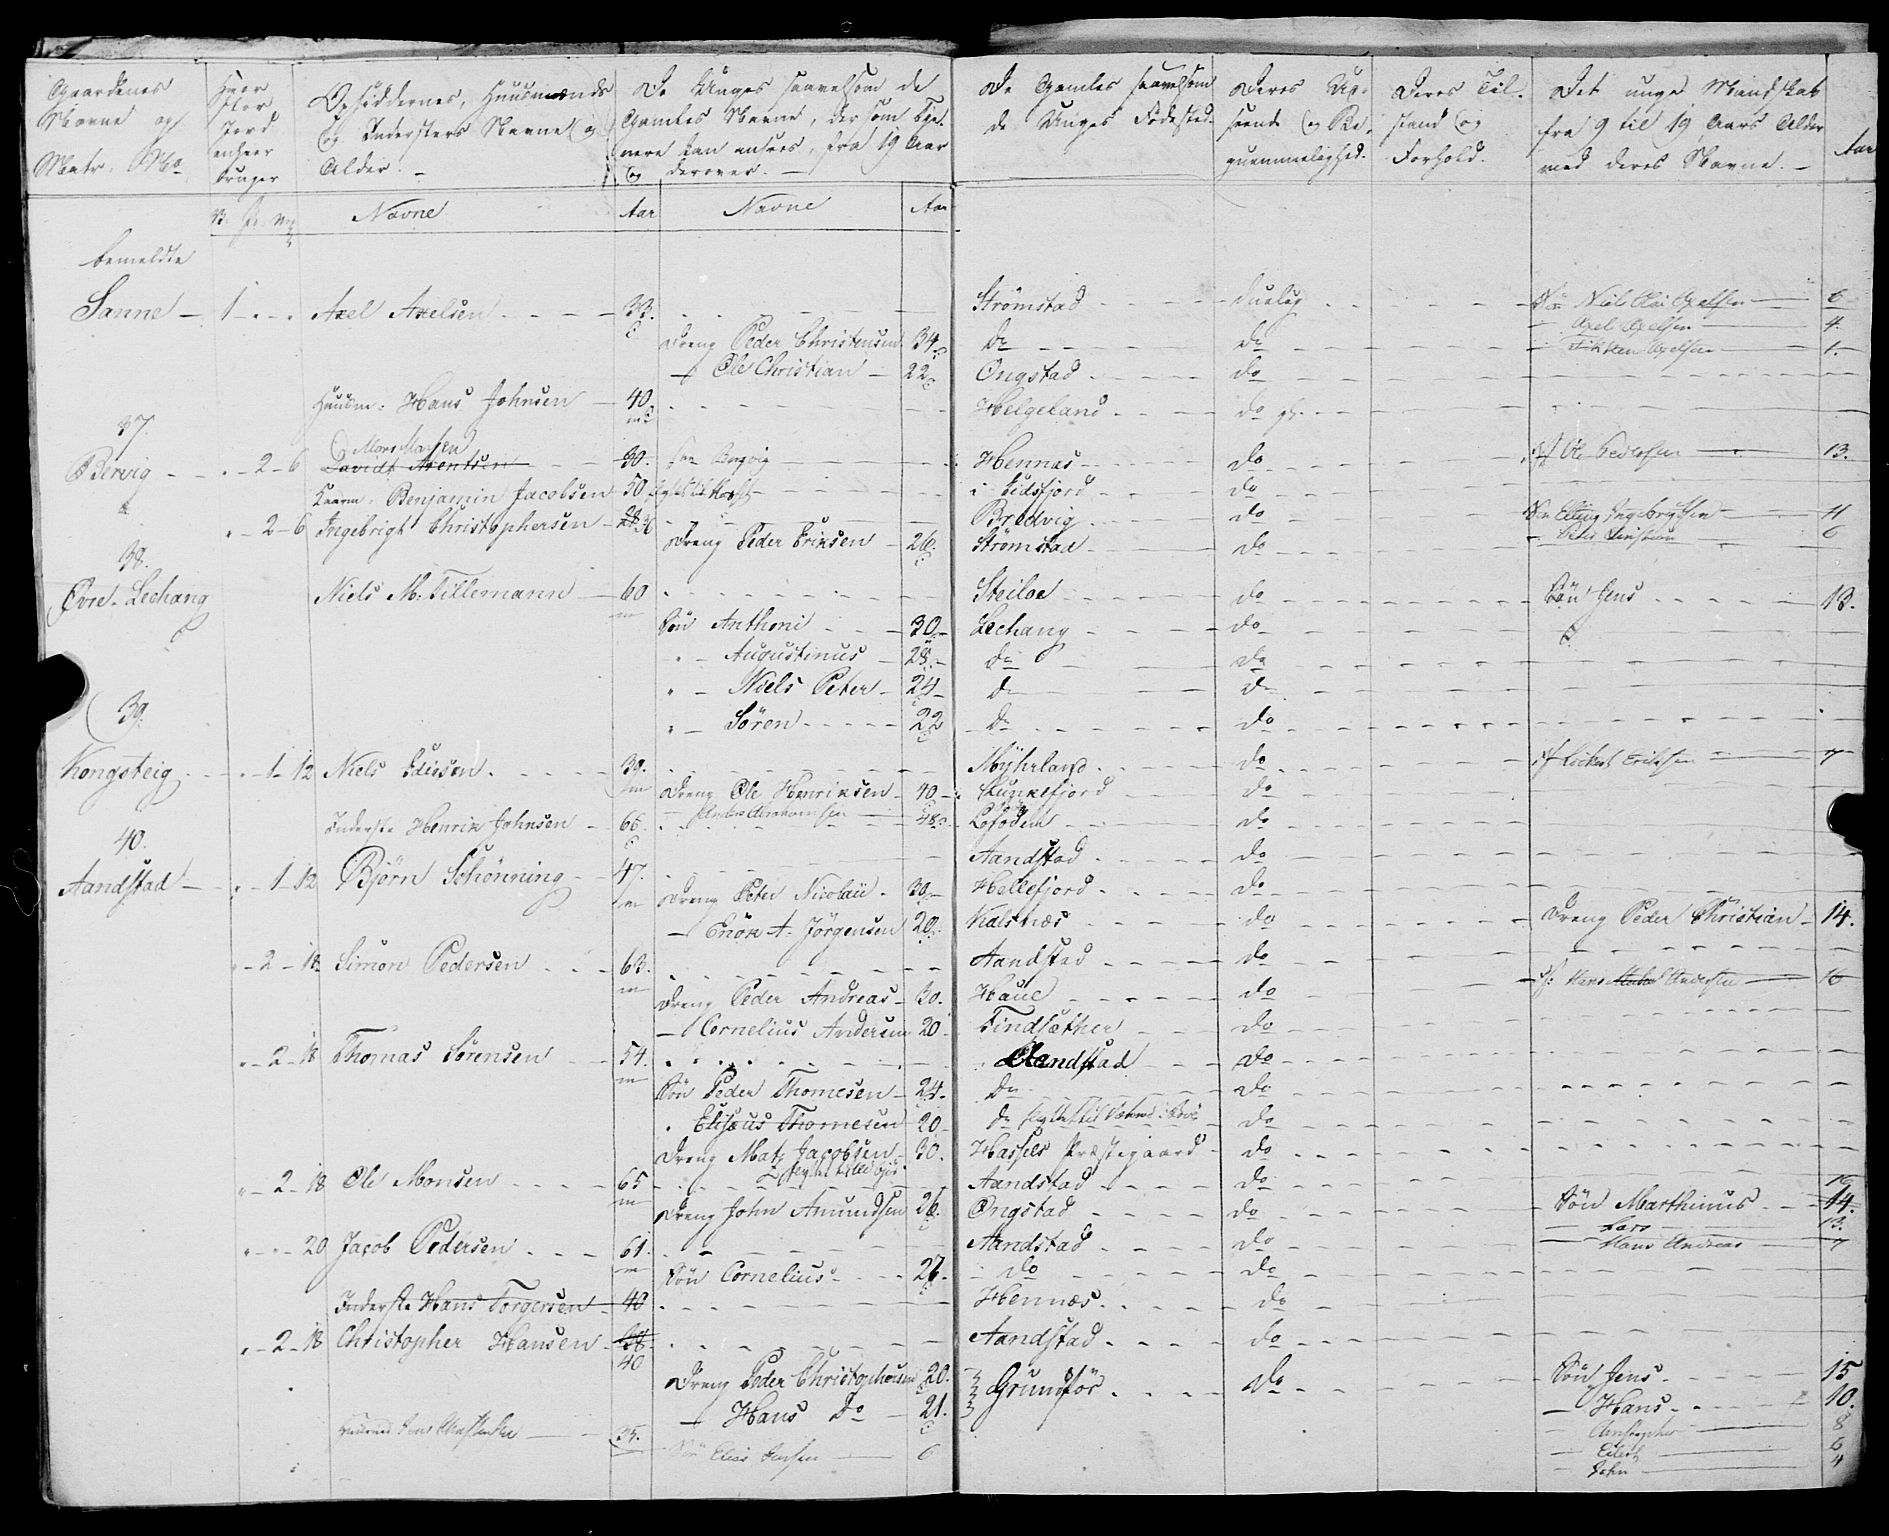 Gaardenes Navne og Matr. No
Hvor stor Jord enhver bruger
Opsiddernes, Huusmænds og Indersters Navne og Alder. -
De Unges saavelsom de Gamles Navne, der som Tjenere kan ansees, fra 19 Aar og derover. -
De Gamles saavelsom de Unges Fødested.
Deres Udseende og Bequemmelighed.
Deres Tilstand og Forhold.
Det unge Mandskab fra 9 til 19 Aars Alder med deres Navne. -
Aar
Navne Aar Navne Aar
bemeldte
Sanne - 1 - - - Axel Axelsen 33. Strömstad duelig Niels Axelsen 6
Axel Axelsen 4.
Dreng Peder Christensen 34 do do Axelsen 1.
- Ole Christian - 22 Ongstad do
Huusm: Hans Johnsen 40 Helgeland do
37.
Mons Monsen
Bervig - 2 - 6 Davidt Arentsen 30. Hennes do Ole Pedersen 13.
Kaarm. Benjamin Jacobsen 50 i Eidsfjord do
- 2 - 6 Ingebrigt Christophersen 36 Bredvig do Ingebrigtsen 11
Dreng Peder Eriksen - 26. Strömstad do 6
38.
Övre-Lechang Niels M. Tillemann 60 Steiloe do Sön Jens 13.
Sön Anthoni 30 Lechang do
" - Augustinus 28. do do
" - Niels Peter - 24 do do
" - Sören 22 do do
39.
Kongsteig - 1 - 12 Niels 39. Myhrland do Erichsen 7
Dreng Ole Henriksen - 40 do
Inderste Henrik Johnsen 66. Anders Abrahamsen 48 Lofoden do
40.
Aandstad - 1 - 12 Björn Schönning 47. Aandstad do
Dreng Peter Nicolai 39 Hellefjord do
- Enok A. Jörgensen 20 Kalsnæs do Dreng Peder Christian 14.
- 2 - 18 Simon Pedersen 63. Aandstad do
Hans Andersen 16
Dreng Peder Andreas 30. Haue do
- Cornelius Andersen 20 Findsæther do
- 2 - 18 Thomas Sörensen 54. Aandstad do
Sön Peder Thomesen 24. do do
" Elisæus Thomesen 20 do do
Dreng Mats Jacobsen 30. Hassels Præstegaard do
- 2 - 18 Ole Monsen 65 Aandstad do 16
Dreng John Amundsen 26. Ongstad do Sön Marthinus 14.
Lars 13.
- 20 Jacob Pedersen 61. Aandstad do Hans Andreas 7
Sön Cornelius 26. do do
Inderste Hans Torgersen 40 Hennes do
- 2 - 18 Christopher Hansen 38 Aandstad do
40
Dreng Peder Christophersen 20. Grundför do Sön Jens 15
- Hans do 21. - Hans 10.
Christopher 8
Huusmd Jens 35. Sön Elias Jensen 6 Eilert 6
John 4